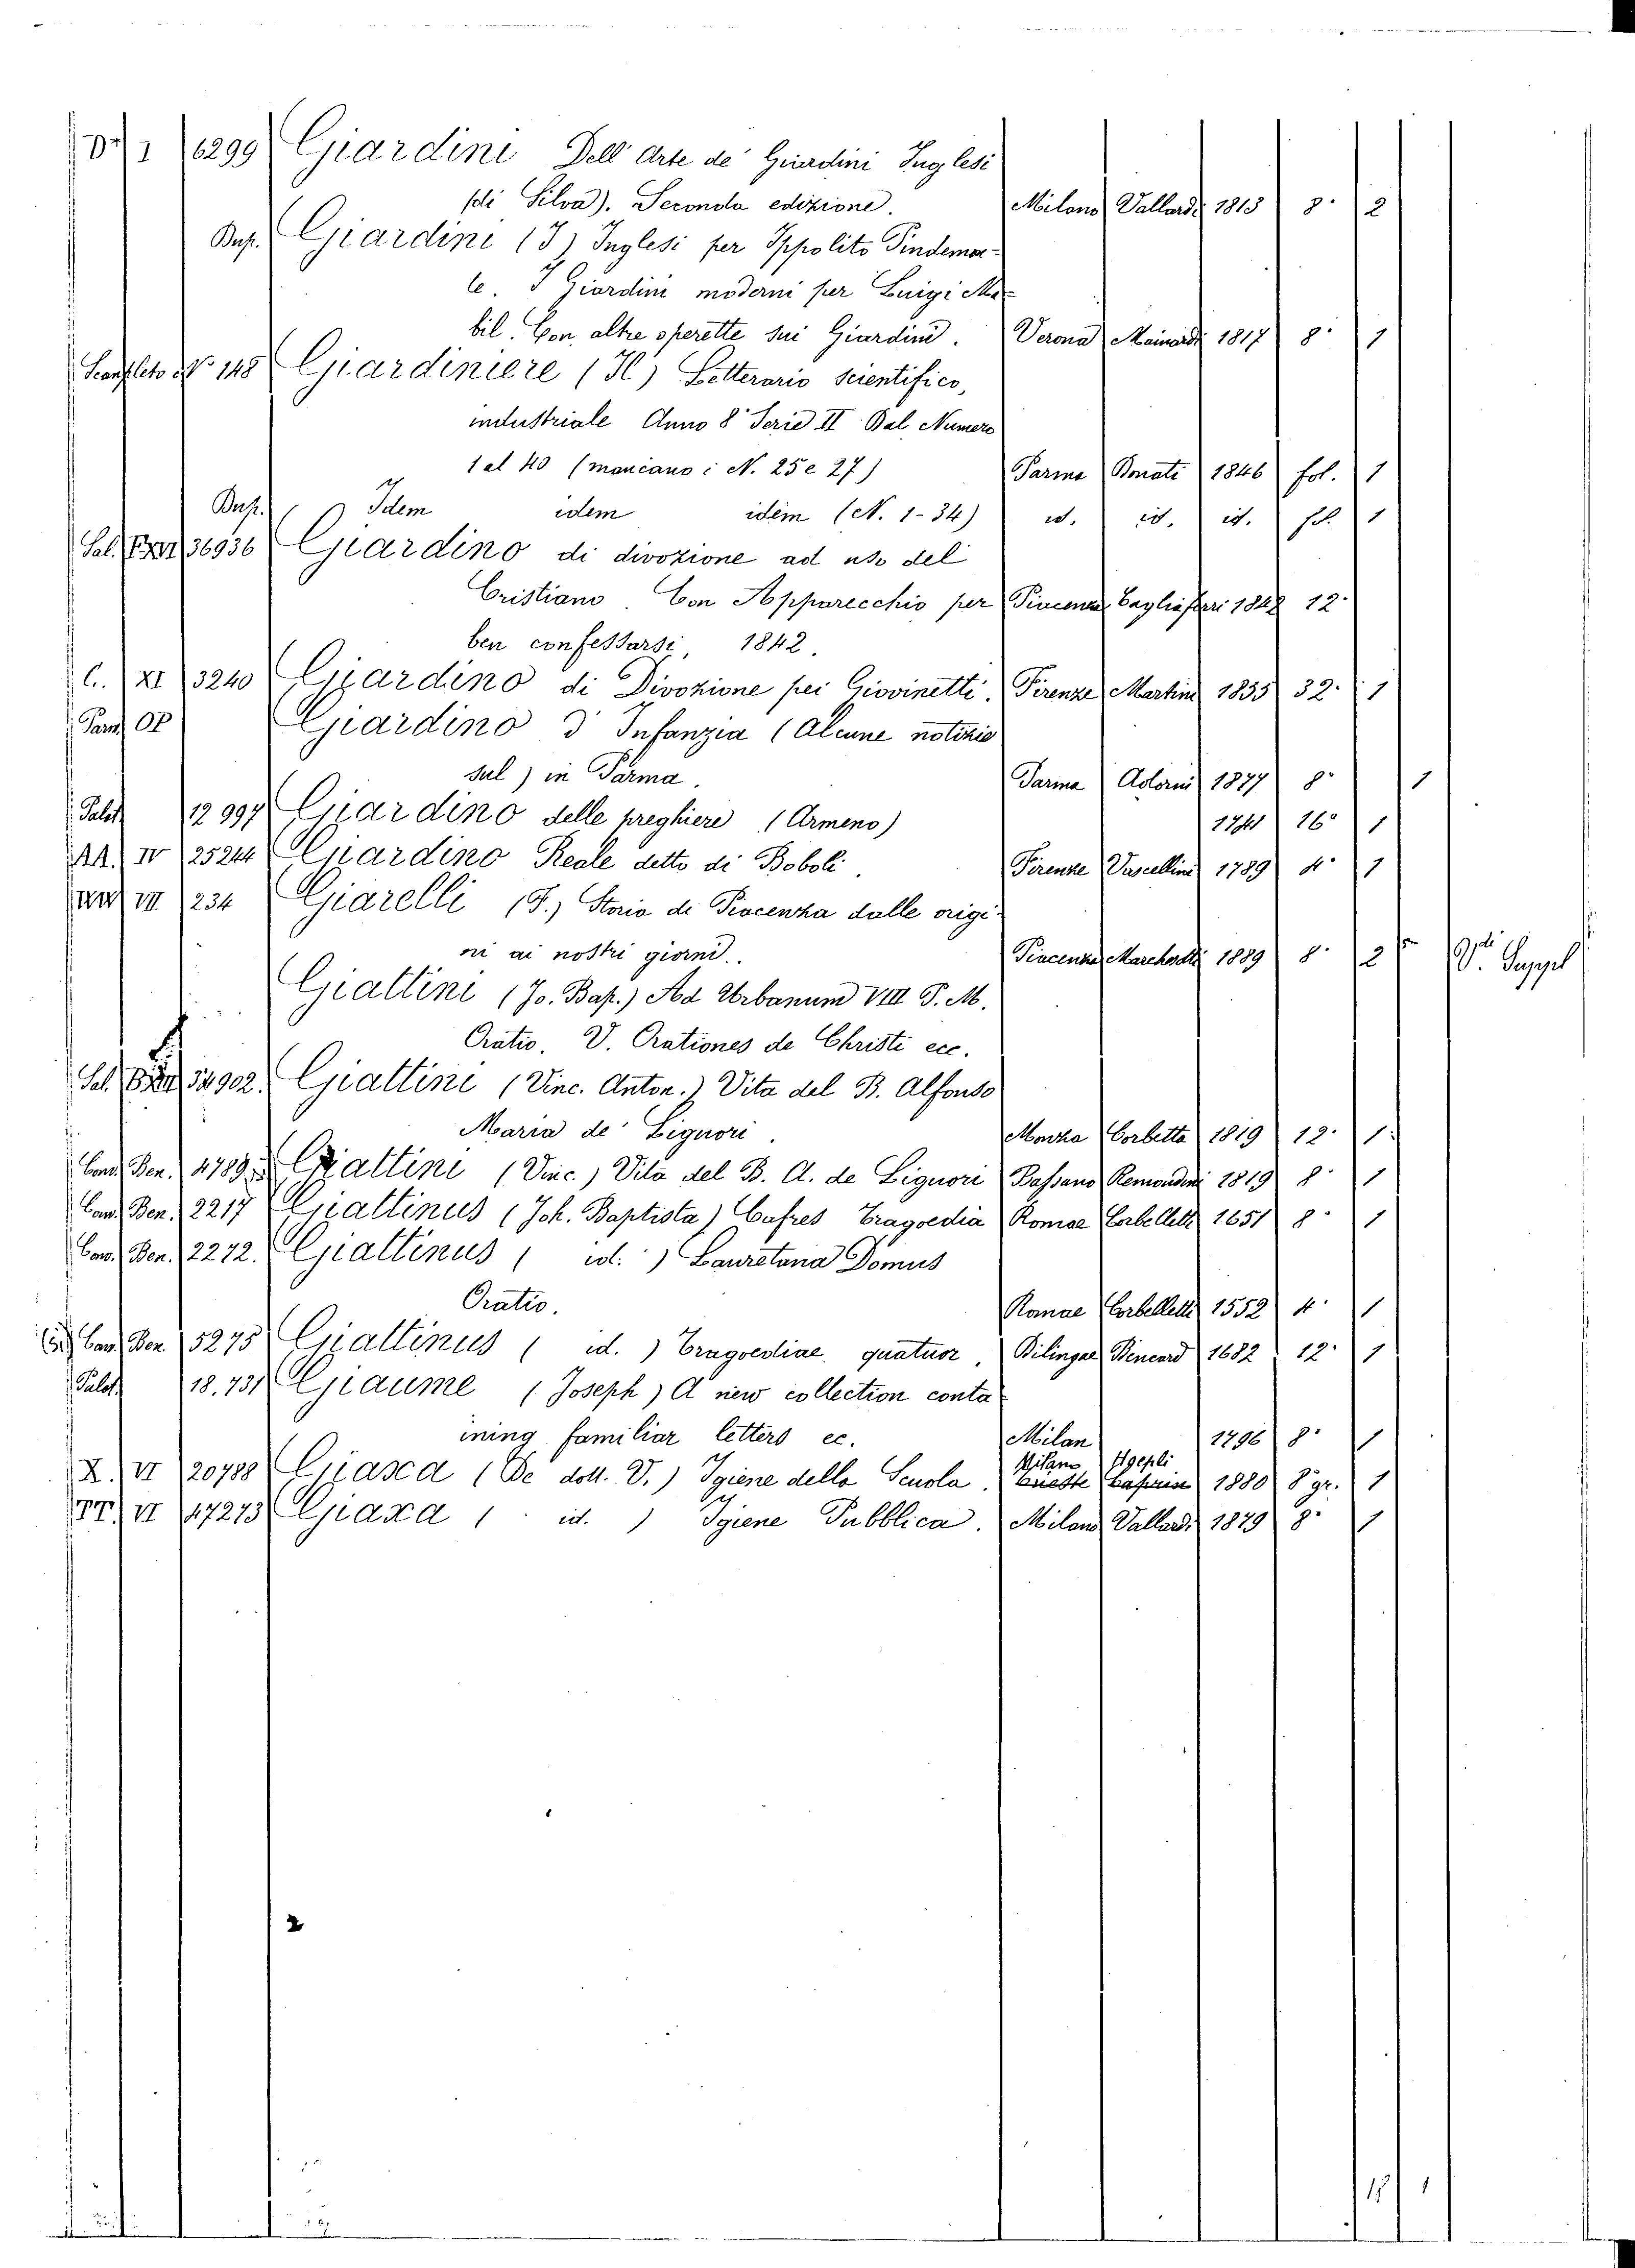 D I 6299 Giardini Dell' Arte de' Giardini Inglesi
(di Silva). Seconda edizione. Milano Vallardi 1813 8° 2
Bus. Giardini (I) Inglesi per Ippolito Pindemon-
te. I Giardini moderni per Luigi Ma-
bil. Con altre operette sui Giardini. Verona Mainardi 1817 8° 1
N° 148 Giardiniere (Il) Letterario scientifico,
industriale Anno 8° Serie II Dal Numero
1 al 40 (mancano i N. 25 e 27) Parma Donati 1846 fol. 1
Bus. Idem idem idem (N. 1-34) id. id. id. fol. 1
Sal. 36936 Giardino di divozione ad uso del
Cristiano. Con Apparecchio per Piacenza Tagliaferri 1842 12°
ben confessarsi, 1842.
C. XI 3240 Giardino di Divozione pei Giovinetti. Firenze Martini 1835 32° 1
OP Giardino d'Infanzia (Alcune notizie
sul) in Parma. Parma Adorni 1877 8° 1
Palat 12997 Giardino delle preghiere (Armeno) 1741 16° 1
AA. IV 25244 Giardino Reale detto di Boboli. Firenze Vascellini 1789 4° 1
VII 234 Giarelli (F.) Storia di Piacenza dalle origi-
ni ai nostri giorni. Piacenza Marchesotti 1889 8° 2 V. Suppl
Giattini (Jo. Bap.) Ad Urbanum VIII P. M.
Oratio. V. Orationes de Christi ecc.
Sal. 34902. Giattini (Vinc. Anton.) Vita del B. Alfonso
Maria de' Liguori. Monza Corbetta 1819 12° 1
Cons. Ben. 4789 Giattini (Vinc.) Vita del B. A. de Liguori Bassano Remondini 1819 8° 1
Cons. Ben. 2217 Giattinus (Joh. Baptista) Cafres Tragoedia Romae Corbelletti 1651 8° 1
Cons. Ben. 2272. Giattinus ( id. ) Lauretana Domus
Oratio. Romae Corbelletti 1552 4° 1
Cons. Ben. 5275 Giattinus ( id. ) Tragoediae quatuor, Dilingae Bencard 1682 12° 1
Palat. 18.731 Giaume (Joseph) A new collection conta
ining familiar letters ec. Milan 1796 8° 1
Milano Hoepli
X. VI 20788 Giaxa (De dott. V.) Igiene della Scuola. Trieste 1880 8° gr. 1
TT. VI 47273 Giaxa ( id. ) Igiene Pubblica. Milano Vallardi 1879 8° 1
2
15 1